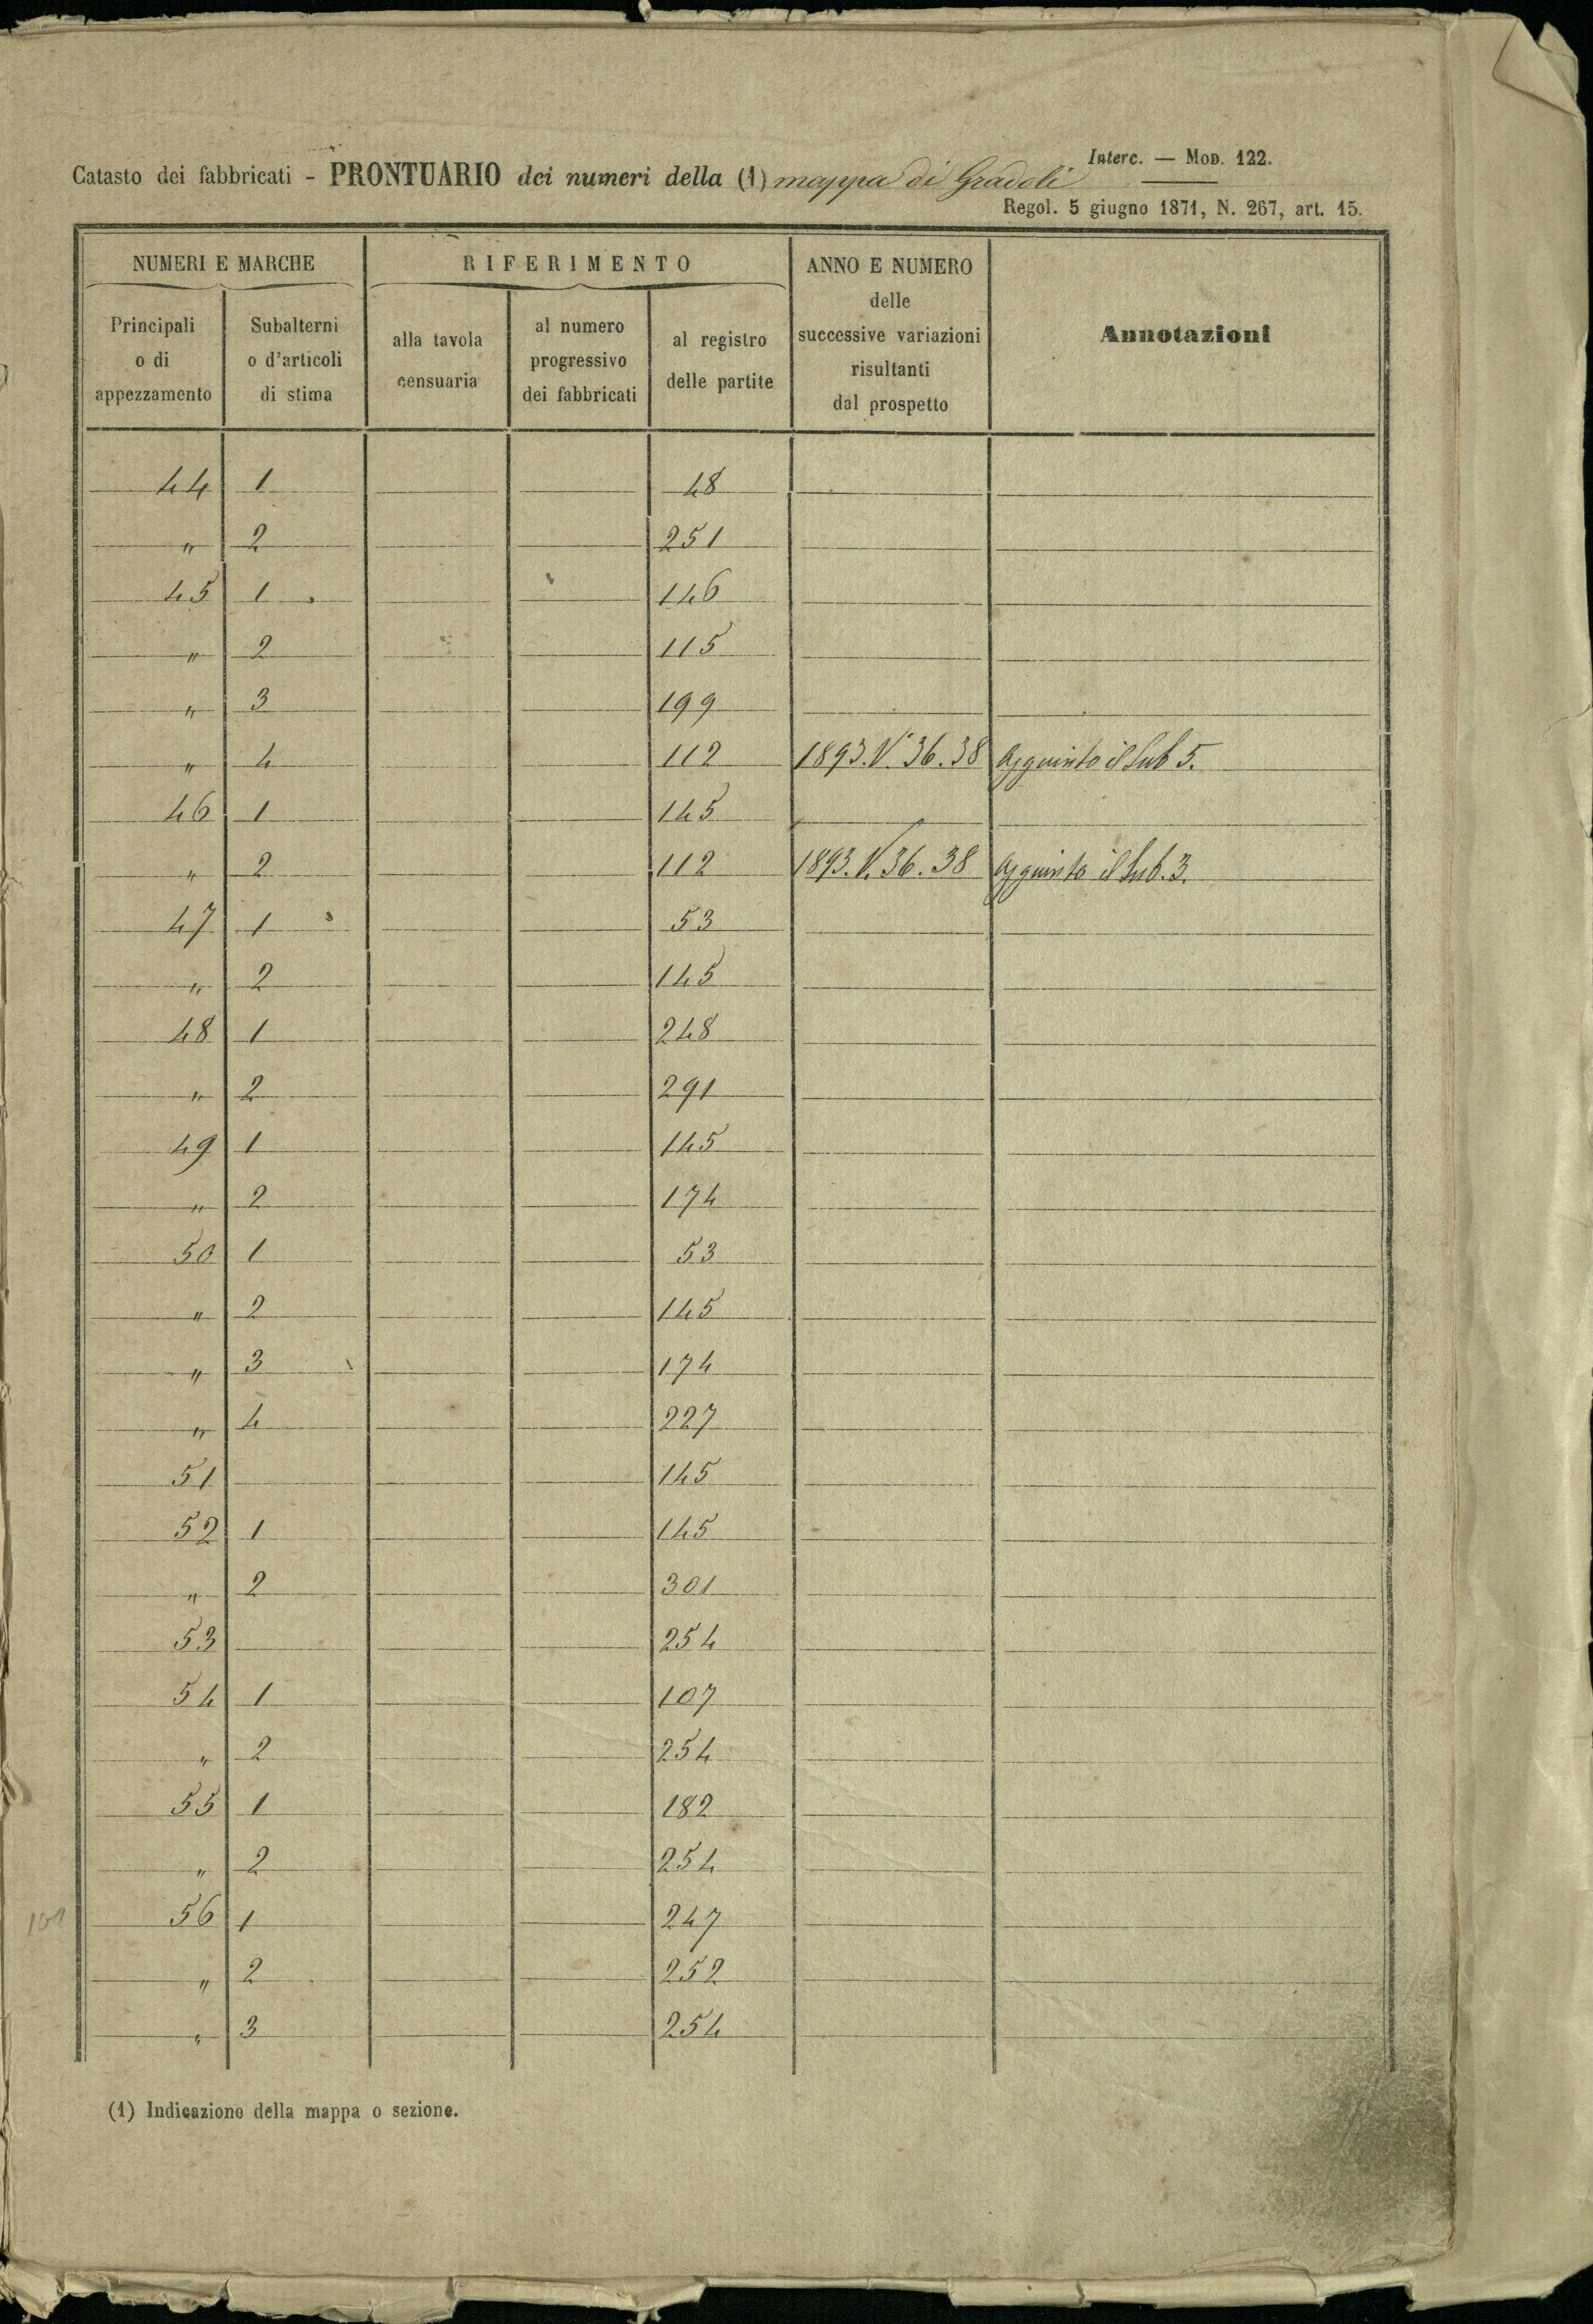 Interc. — Mod. 122.
Catasto dei fabbricati - PRONTUARIO dei numeri della (1) mappa di Gradoli
Regol. 5 giugno 1871, N. 267, art. 15.
NUMERI E MARCHE RIFERIMENTO ANNO E NUMERO delle successive variazioni risultanti dal prospetto Annotazioni
Principali o di appezzamento Subalterni o d'articoli di stima alla tavola censuaria al numero progressivo dei fabbricati al registro delle partite
44 1 48
" 2 251
45 1 146
" 2 115
" 3 199
" 4 112 1893. V. 36. 38 Aggiunto il Sub 5.
46 1 145
" 2 112 1893. V. 36. 38 Aggiunto il Sub. 3.
47 1 53
" 2 145
48 1 248
" 2 291
49 1 145
" 2 174
50 1 53
" 2 145
" 3 174
" 4 227
51 145
52 1 145
" 2 301
53 254
54 1 107
" 2 254
55 1 182
" 2 254
56 1 247
" 2 252
" 3 254
(1) Indicazione della mappa o sezione.